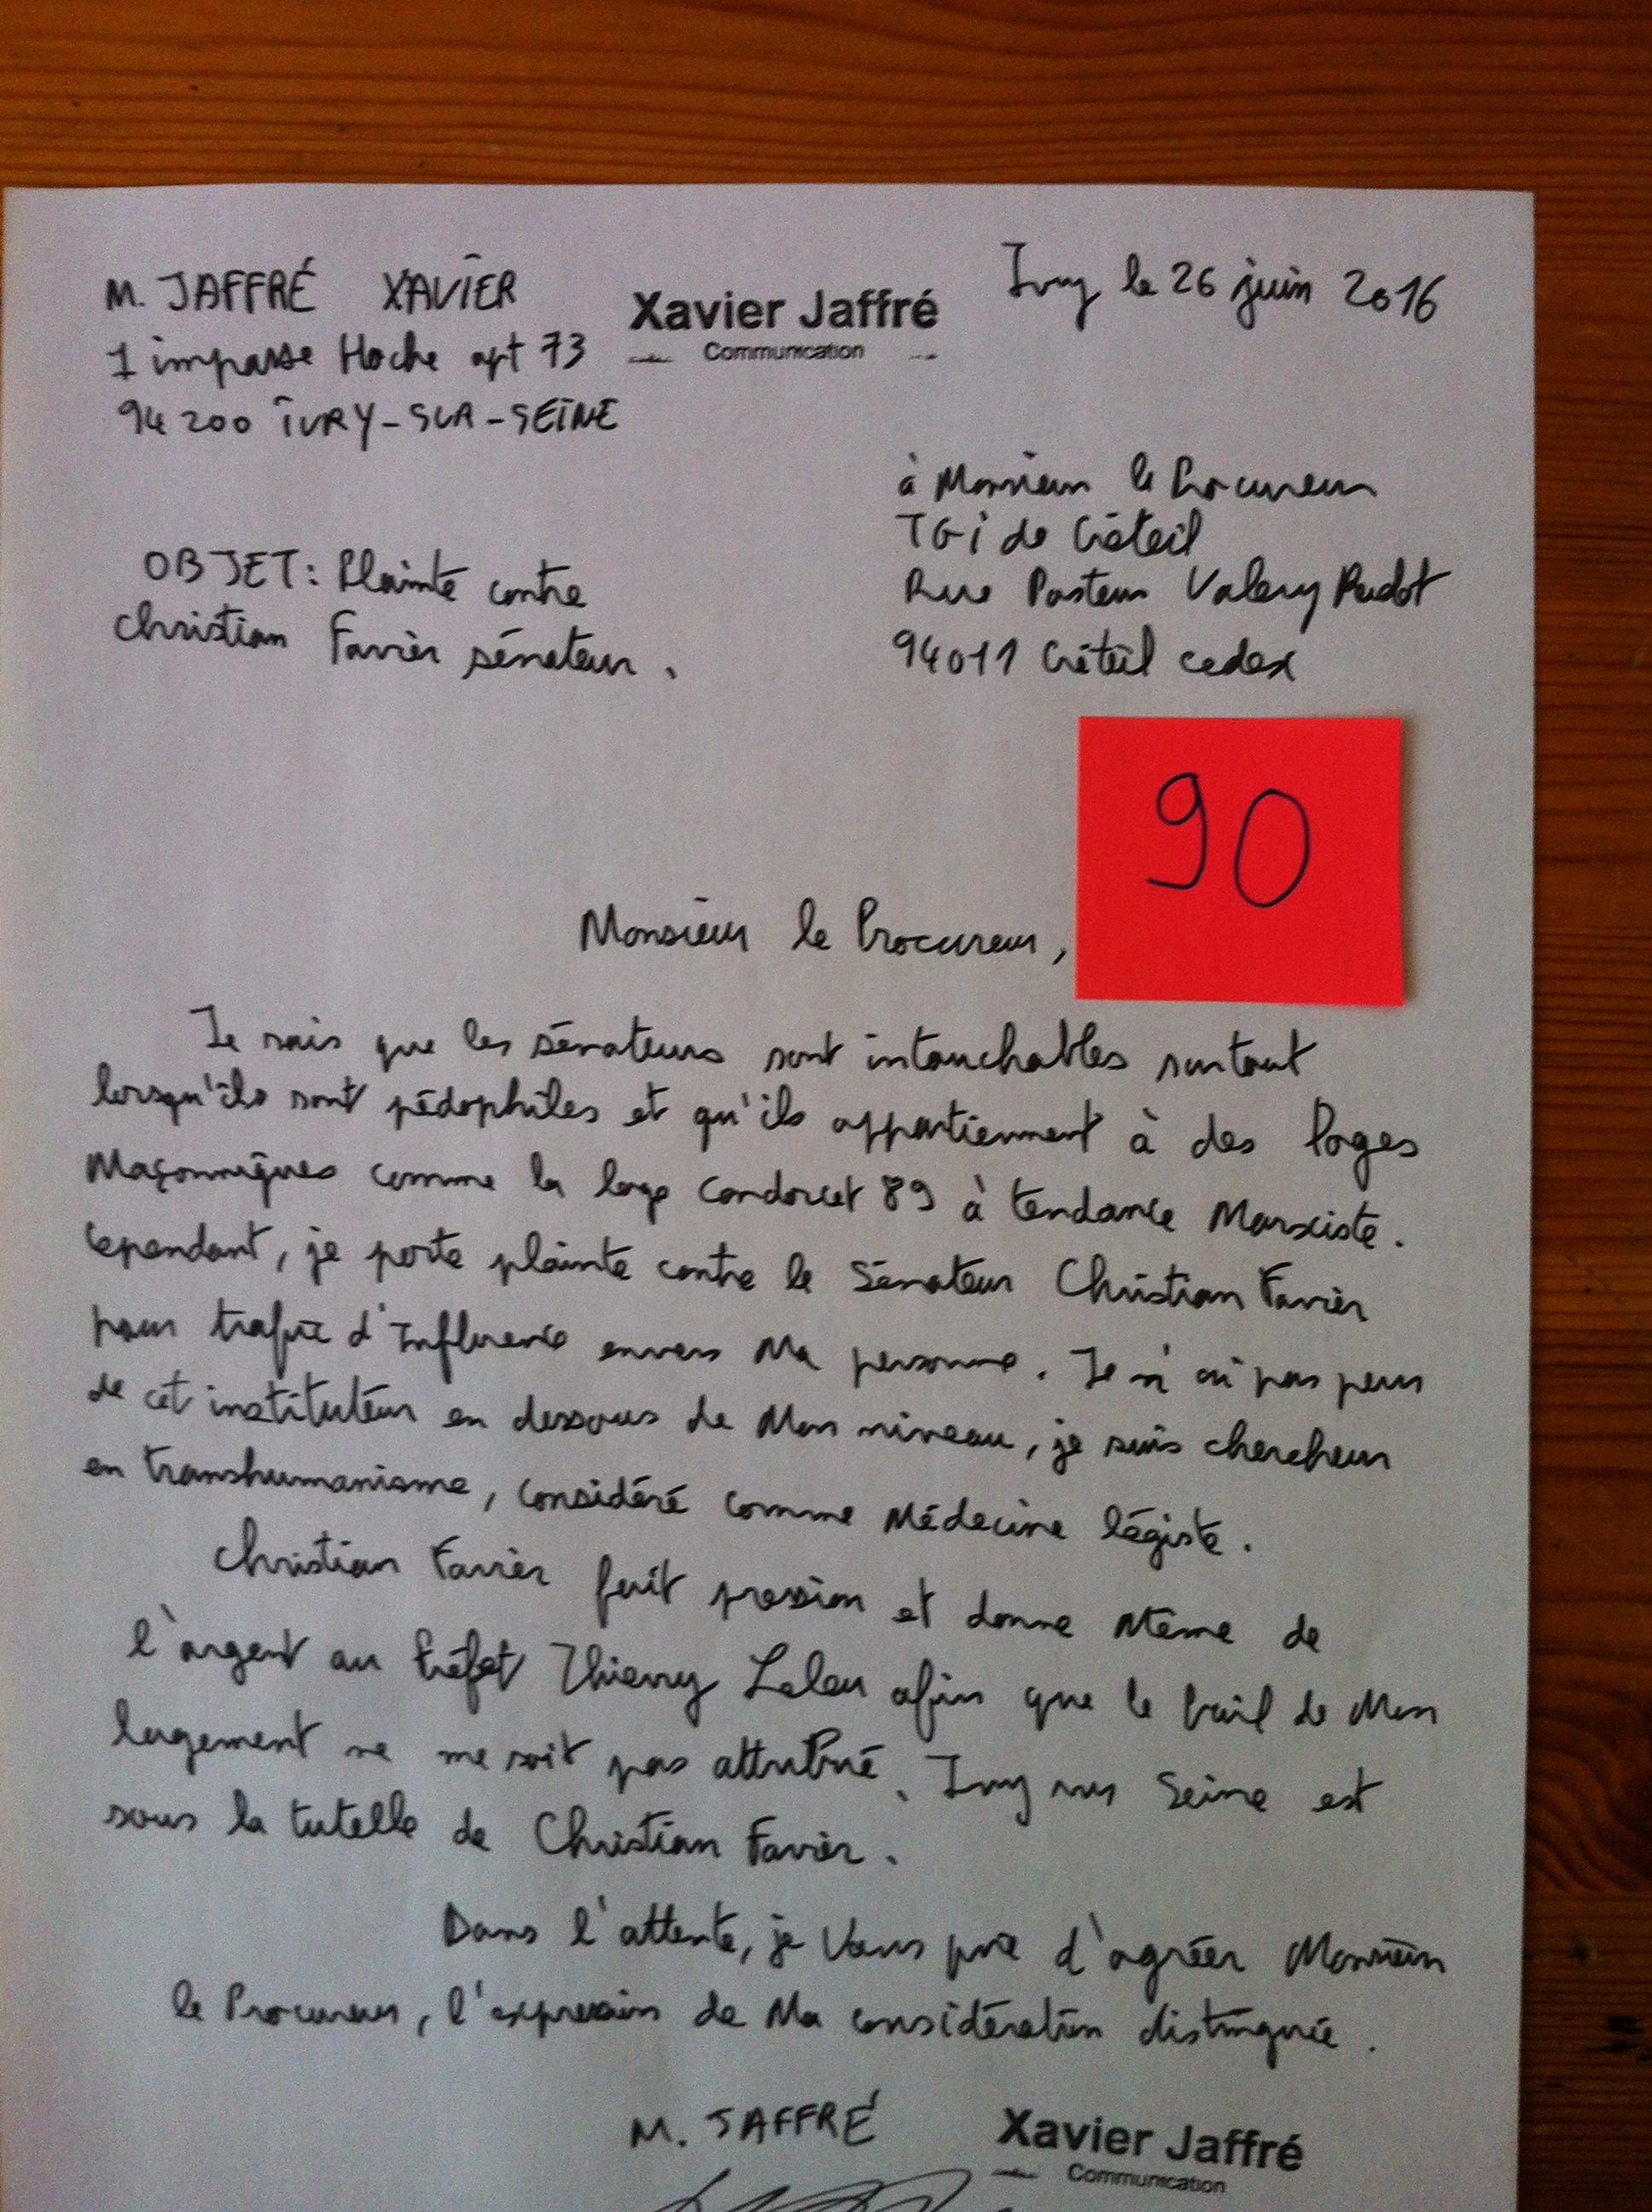 M. JAFFRÉ XAVIER
Xavier Jaffré
Communication
Ivry le 26 juin 2016
1 impasse Hoche apt 73
94200 IVRY-SUR-SEINE
à Monsieur le Procureur
TGI de Créteil
Rue Pasteur Valery Radot
94011 Créteil cedex
OBJET: Plainte contre
Christian Favier sénateur.
90
Monsieur le Procureur,
Je sais que les sénateurs sont intouchables surtout
lorsqu'ils sont pédophiles et qu'ils appartiennent à des loges
Maçonniques comme la loge Condorcet 89 à tendance Marxiste.
Cependant, je porte plainte contre le Sénateur Christian Favier
pour trafic d'Influence envers Ma personne. Je n'ai pas peur
de cet instituteur en dessous de Mon niveau, je suis chercheur
en transhumanisme, considéré comme Médecine légiste.
Christian Favier fait pression et donne Même de
l'argent au Préfet Thierry Leleu afin que le bail de Mon
logement ne me soit pas attribué. Ivry sur Seine est
sous la tutelle de Christian Favier.
Dans l'attente, je Vous prie d'agréer Monsieur
le Procureur, l'expression de Ma considération distinguée.
M. JAFFRÉ
Xavier Jaffré
Communication